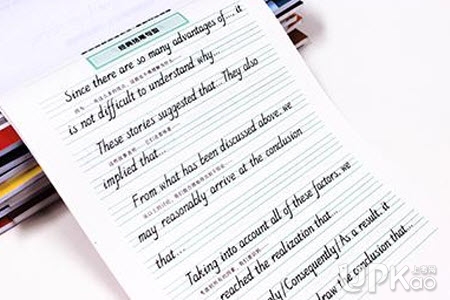 经典结尾句型
Since there are so many advantages of..., it
is not difficult to understand why...
These stories suggested that...They also
implied that...
From what has been discussed above, we
may reasonably arrive at the conclusion
that...
Taking into account all of these factors, we
reached the realization that...
ly/Consequently/As a result, it
draw the conclusion that...
UPKao
上考网